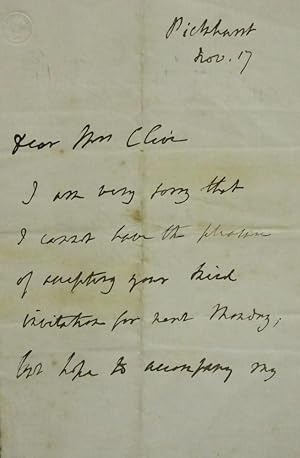 Pickhurst
Nov. 17
Dear Mrs Clive
I am very sorry that
I cannot have the pleasure
of accepting your kind
invitation for next Monday,
but hope to accompany my